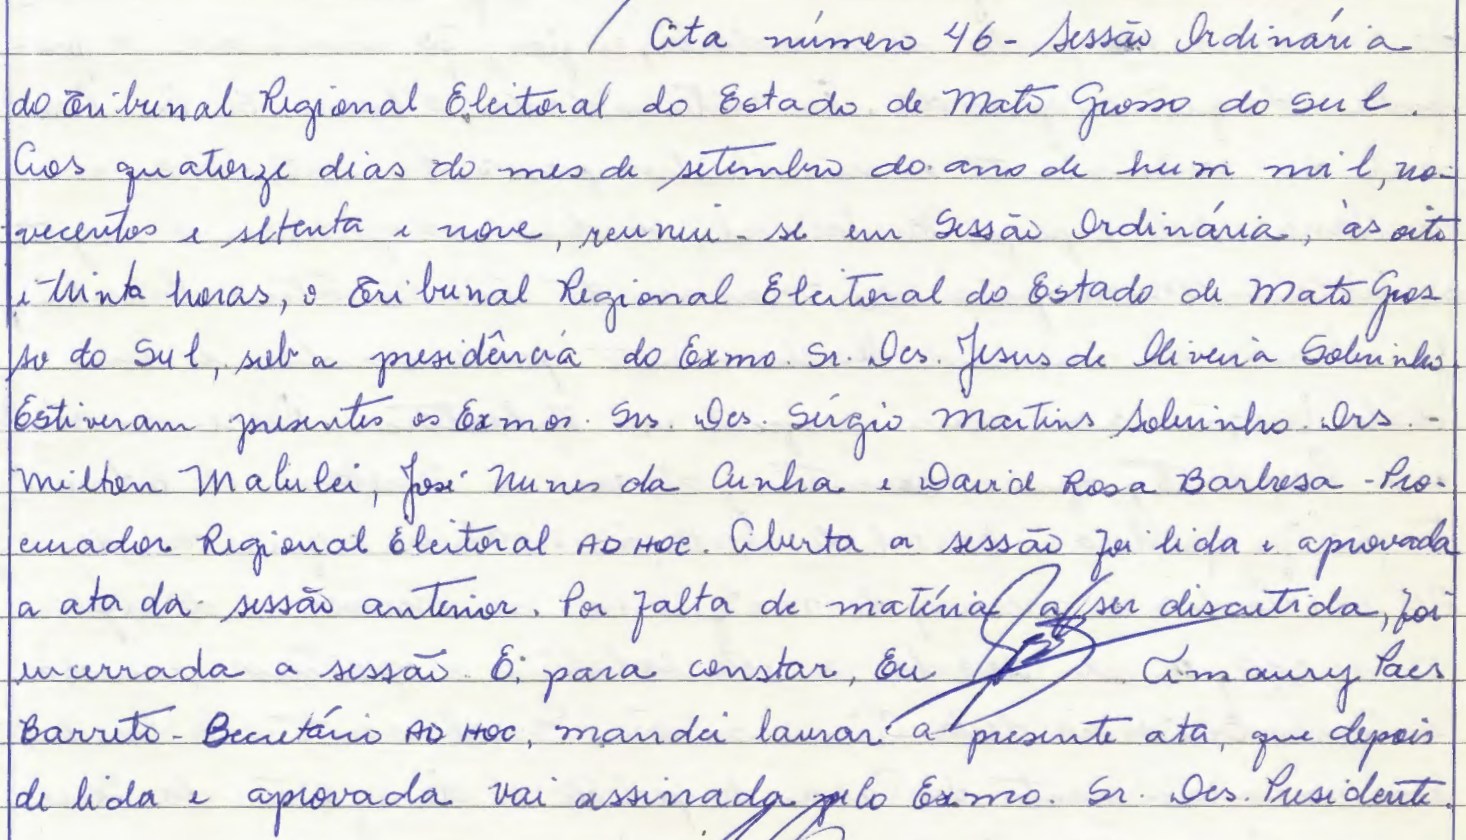 Ata número 46 - Sessão Ordinária
do Tribunal Regional Eleitoral do Estado de Mato Grosso do Sul.
Aos quatorze dias do mes de setembro do ano de hum mil, no-
vecentos e setenta e nove, reuniu-se em Sessão Ordinária, às oito
e trinta horas, o Tribunal Regional Eleitoral do Estado de Mato Gros
so do Sul, sob a presidência do Exmo. Sr. Des. Jesus de Oliveira Sobrinho
Estiveram presentes os Exmos. Srs. Des. Sérgio Martins Sobrinho. Drs. -
Milton Malulei, José Nunes da Cunha e David Rosa Barbosa - Pro-
curador Regional Eleitoral AD HOC. Aberta a sessão foi lida e aprovada
a ata da sessão anterior. Por falta de matéria a ser discutida, foi
encerrada a sessão. E, para constar, Eu Amaury Paes
Barreto - Secretário AD HOC, mandei lavrar a presente ata, que depois
de lida e aprovada vai assinada pelo Exmo. Sr. Des. Presidente.